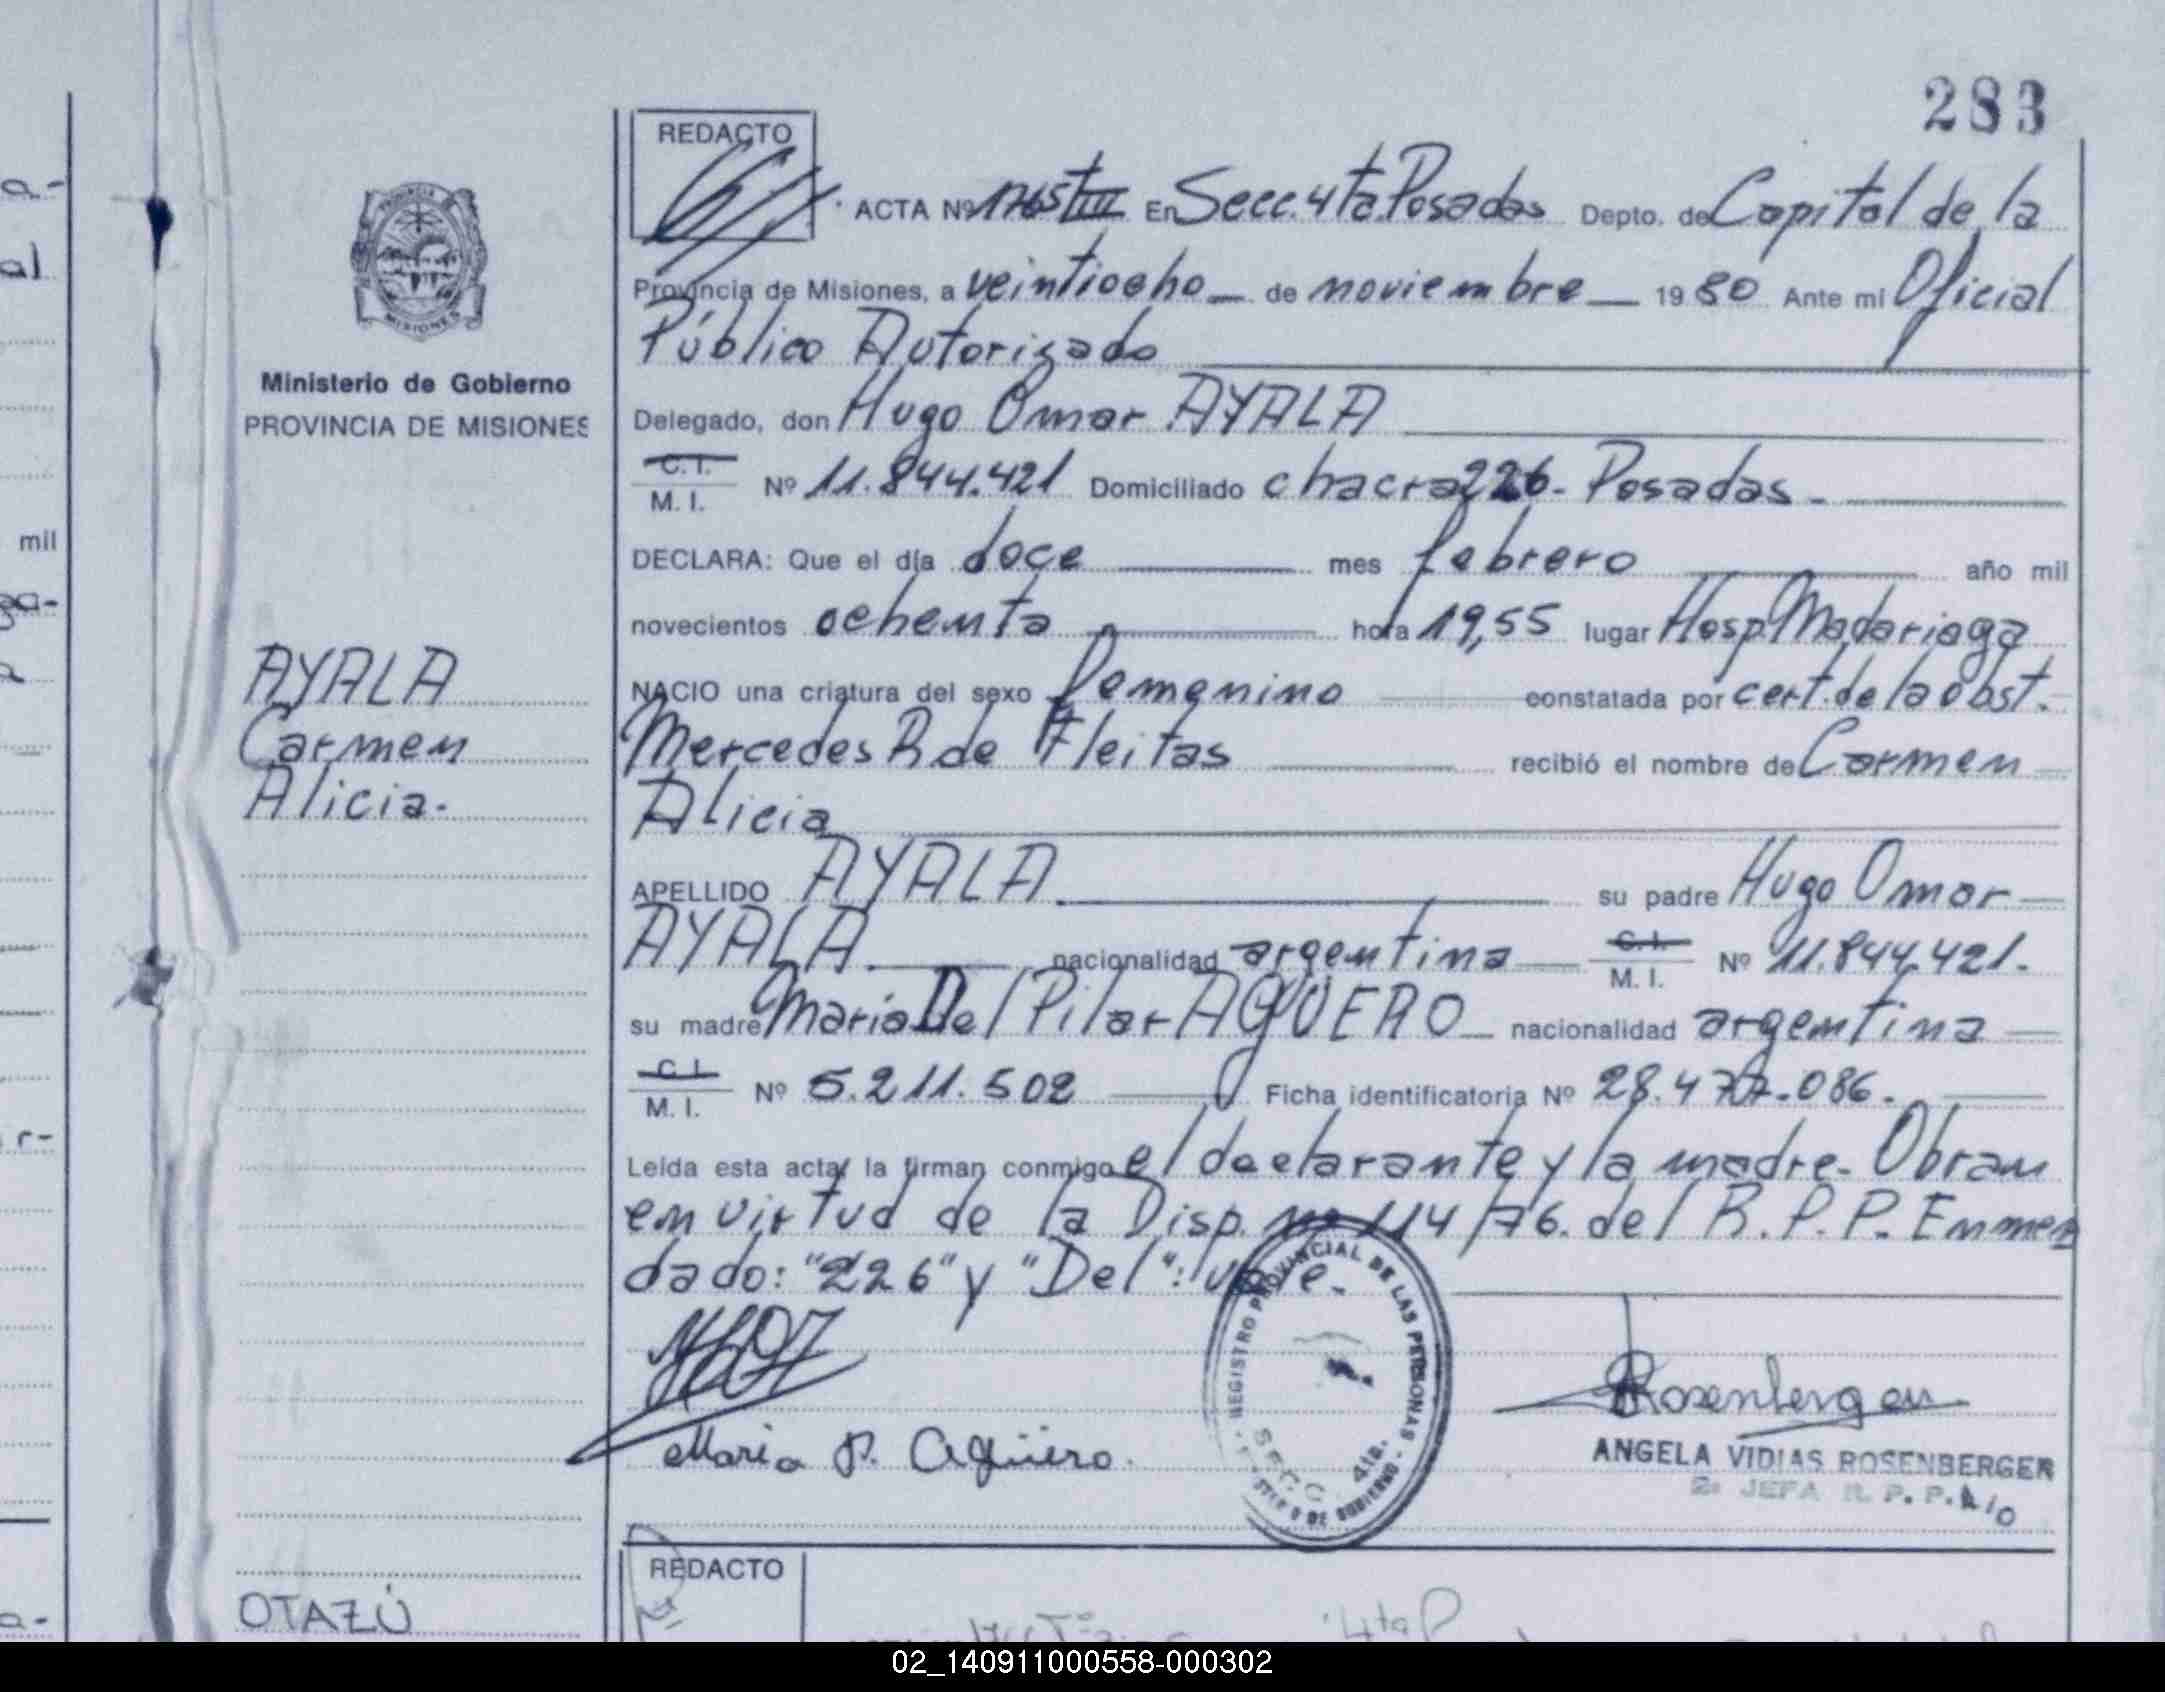 283
REDACTO
ACTA Nº 1765 T III En Secc. 4ta. Posadas Depto. de Capital de la
Provincia de Misiones, a veintiocho de noviembre 1980 Ante mi Oficial
Público Autorizado
Delegado, don Hugo Omar AYALA
C. I.
M. I. Nº 11.844.421 Domiciliado chacra 226- Posadas-
DECLARA: Que el día doce mes febrero año mil
novecientos ochenta hora 19,55 lugar Hosp. Madariaga
NACIO una criatura del sexo femenino constatada por cert. de la obst.
Mercedes R de Fleitas recibió el nombre de Carmen
Alicia
APELLIDO AYALA. su padre Hugo Omar
AYALA nacionalidad argentina C. I.
M. I. Nº 11.844.421.
su madre María Del Pilar AGÜERO nacionalidad argentina
C. I.
M. I. Nº 5.211.502 Ficha identificatoria Nº 28.477.086.
Leída esta acta, la firman conmigo el declarante y la madre. Obran
en virtud de la Disp. nº 114/76. del R.P.P. Enmen
dado: "226" y "Del": vale.
María P. Agüero.
Rosenberger
ANGELA VIDIAS ROSENBERGER
2: JEFA R. P. P.
REGISTRO PROVINCIAL DE LAS PERSONAS
SECC. 4ta.
DE GOBIERNO
PROVINCIA
MISIONES
Ministerio de Gobierno
PROVINCIA DE MISIONES
AYALA
Carmen
Alicia.
OTAZÚ
REDACTO
a-
al
mil
ga-
a
r-
a-
02_140911000558-000302